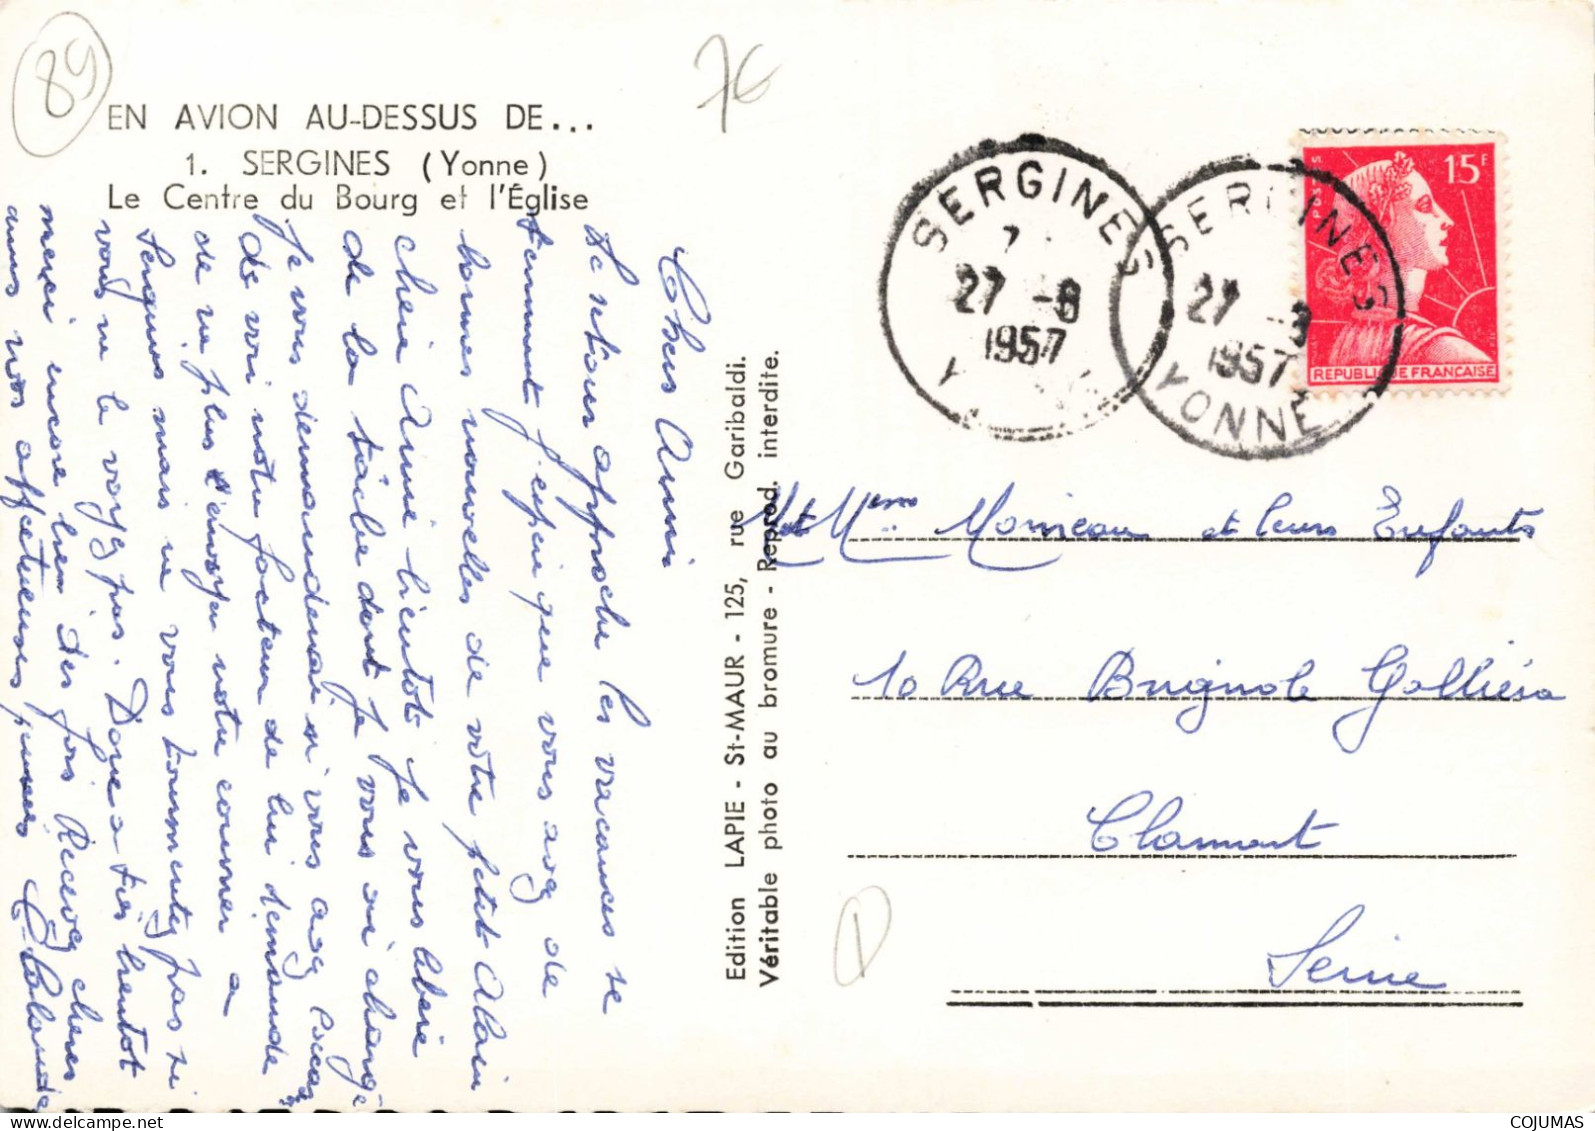 89
7€
EN AVION AU-DESSUS DE...
1. SERGINES (Yonne)
Le Centre du Bourg et l'Église
Chers Amis
Le retour approche les vacances se
terminent j'espère que vous avez de
bonnes nouvelles de votre petit Alain
chère Amie bientot je vous libère
de la tâche dont je vous ai chargé
Je vous demanderai si vous avez
de voir notre facteur de lui demande
de ne plus envoyer notre courrier a
Sergines mais ne vous tourmentez pas si
vous ne le voyez pas. Donc a très bientot
merci encore bien des fois Recevez chers
amis nos affectueuses pensées
Edition LAPIE - St-MAUR - 125, rue Garibaldi.
Véritable photo au bromure - Reprod. interdite.
SERGINES
27 -8
1957
SERGINES
27 -8
1957
YONNE
POSTES
15F
REPUBLIQUE FRANÇAISE
M et Mme Moineau et leurs Enfants
10 Rue Brignole Galliéra
Clamart
Seine
COJUMAS